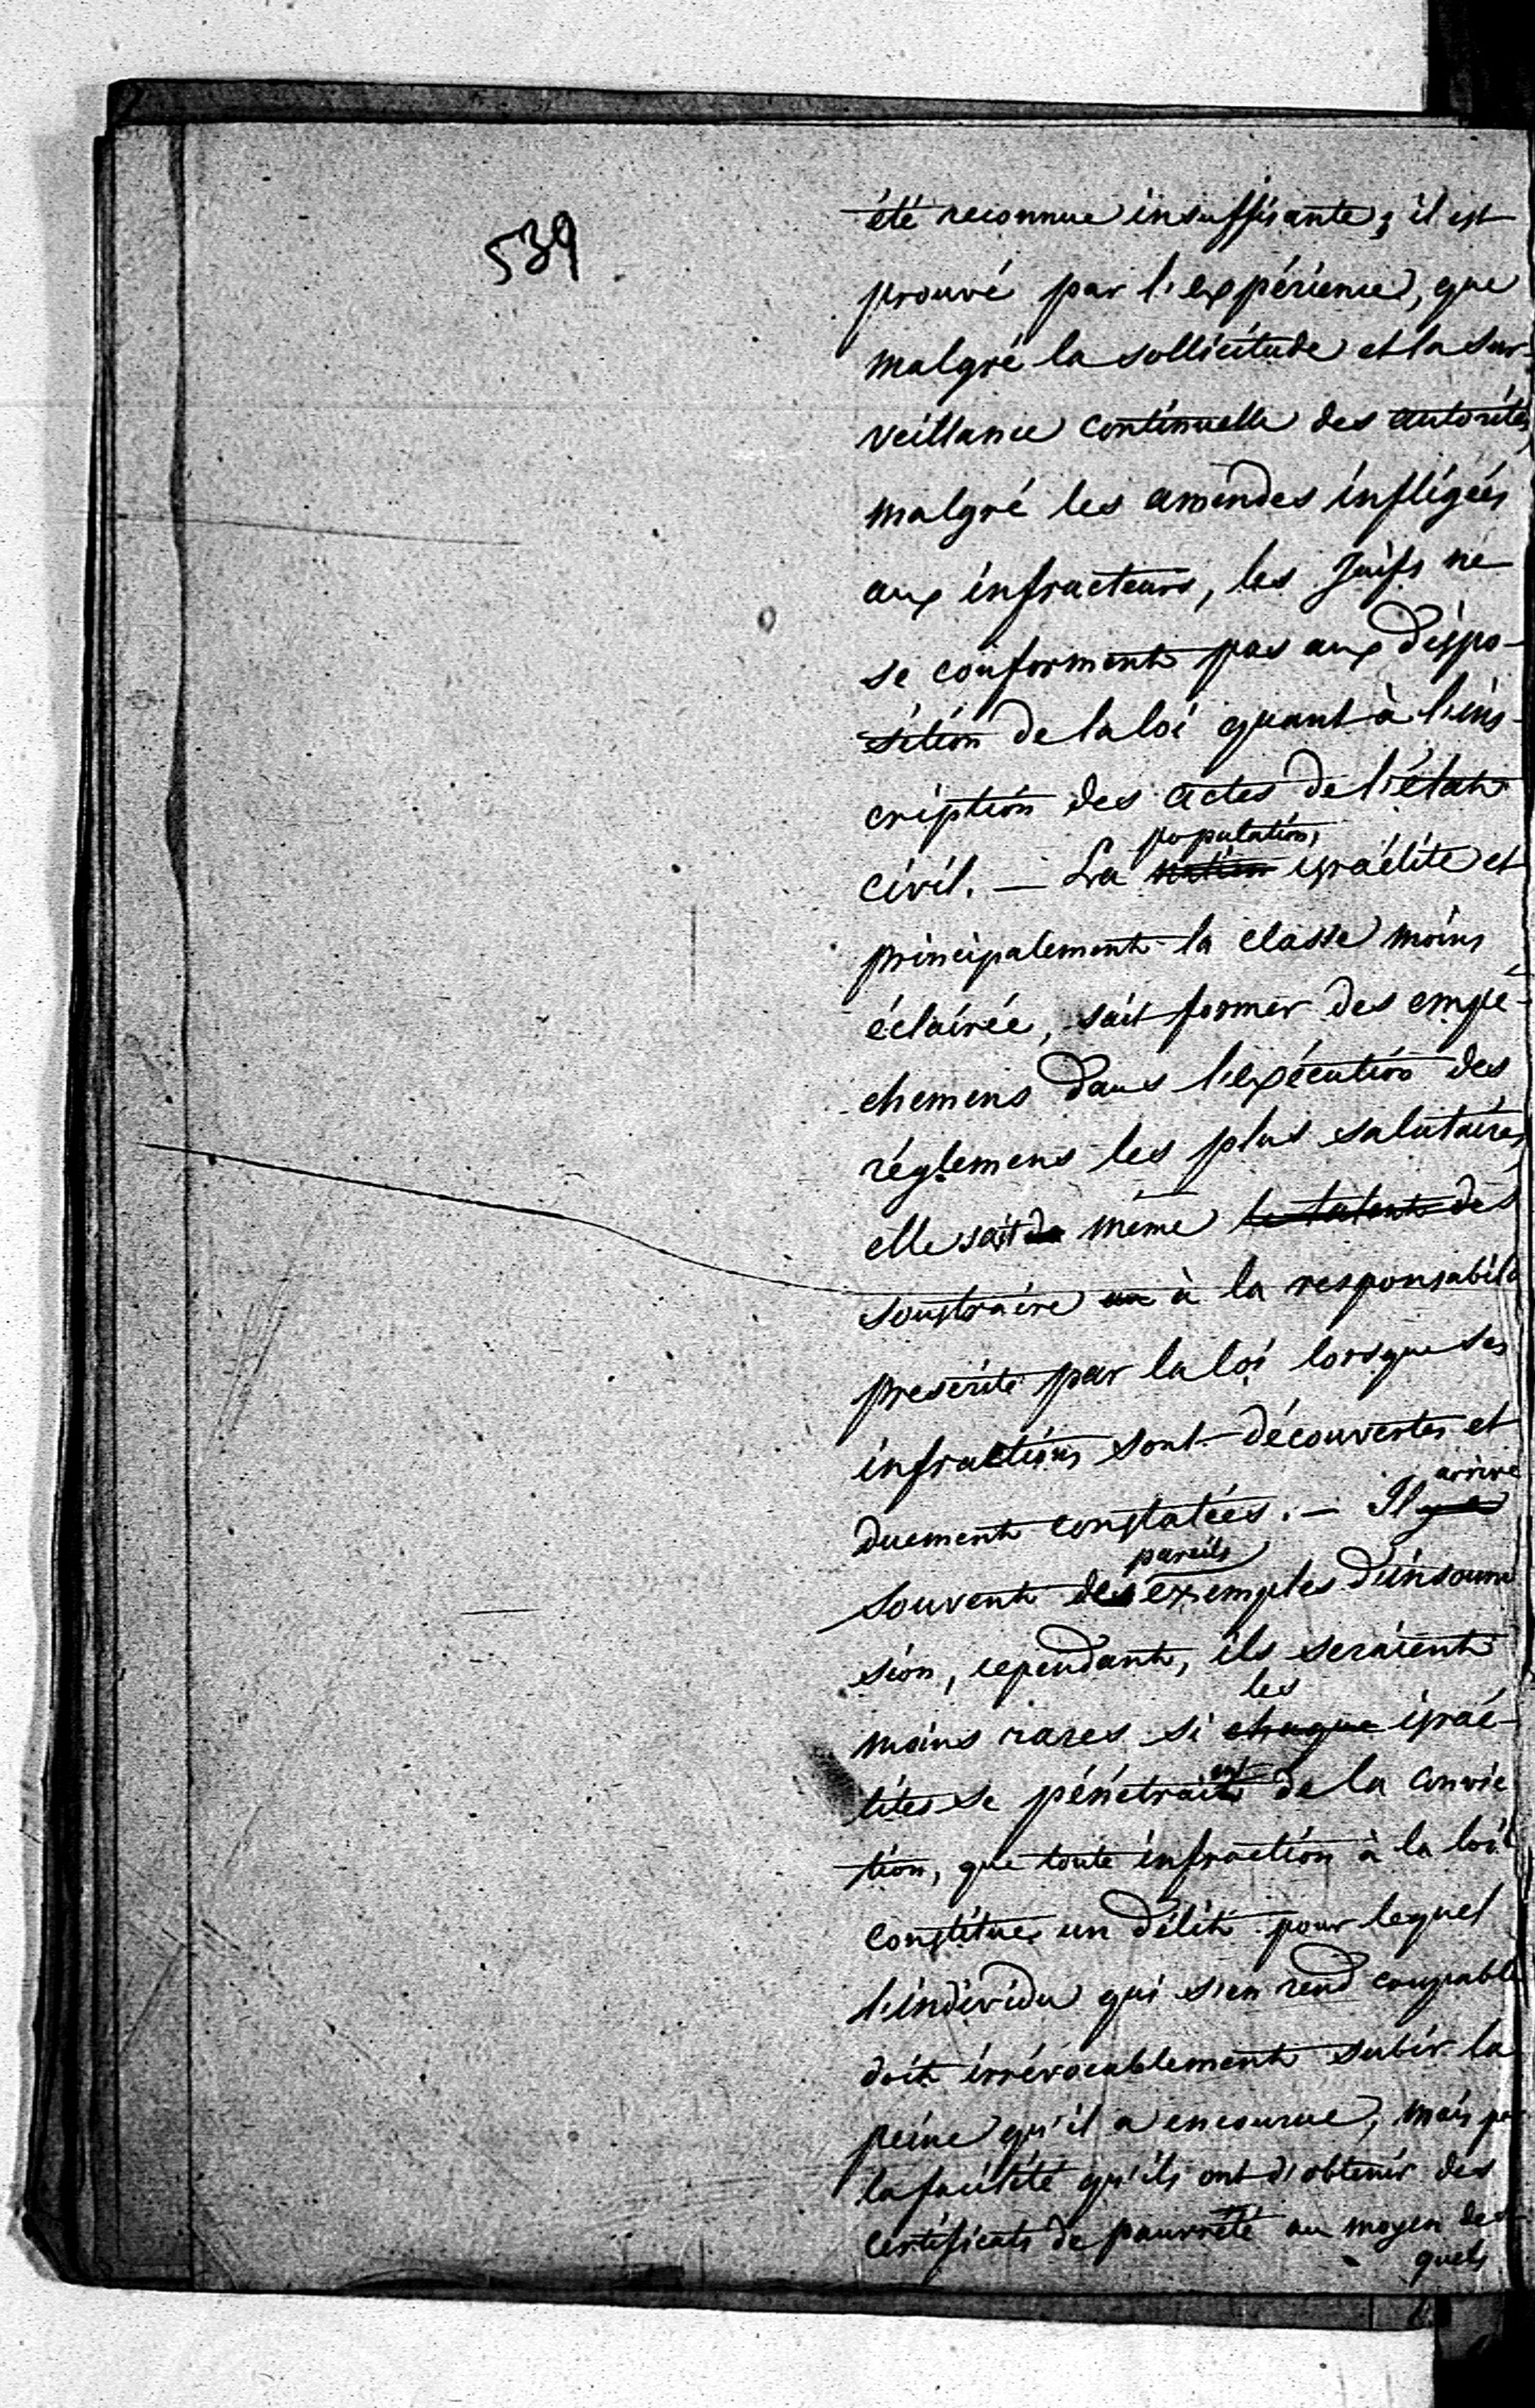 539
été reconnue insuffisante; il est
prouvé par l'expérience, que
malgré la sollicitude et la sur-
veillance continuelle des autorités,
malgré les amendes infligées
aux infracteurs, les Juifs ne
se conforment pas aux dispo-
sition de la loi quant à l'ins-
cription des actes de l'état
population,
civil. — La nation israélite et
principalement la classe moins
éclairée, sait former des empê-
chemens dans l'exécution des
réglemens les plus salutaires,
elle sait de même le talent de s
soustraire à la responsabili
prescrite par la loi lorsque ses
infractions sont découvertes et
arrive
duement constatées. — Il y a
pareils
souvent des exemples d'insoumi
sion, cependant, ils seraient
les
moins rares si chaque israé-
ent
lites se pénétrait de la convic
tion, que toute infraction à la loi
constitue un délit pour lequel
l'individu qui s'en rend coupable
doit irrévocablement subir la
peine qu'il a encourue; mais par
la facilité qu'ils ont d'obtenir des
certificats de pauvreté au moyen des
quels